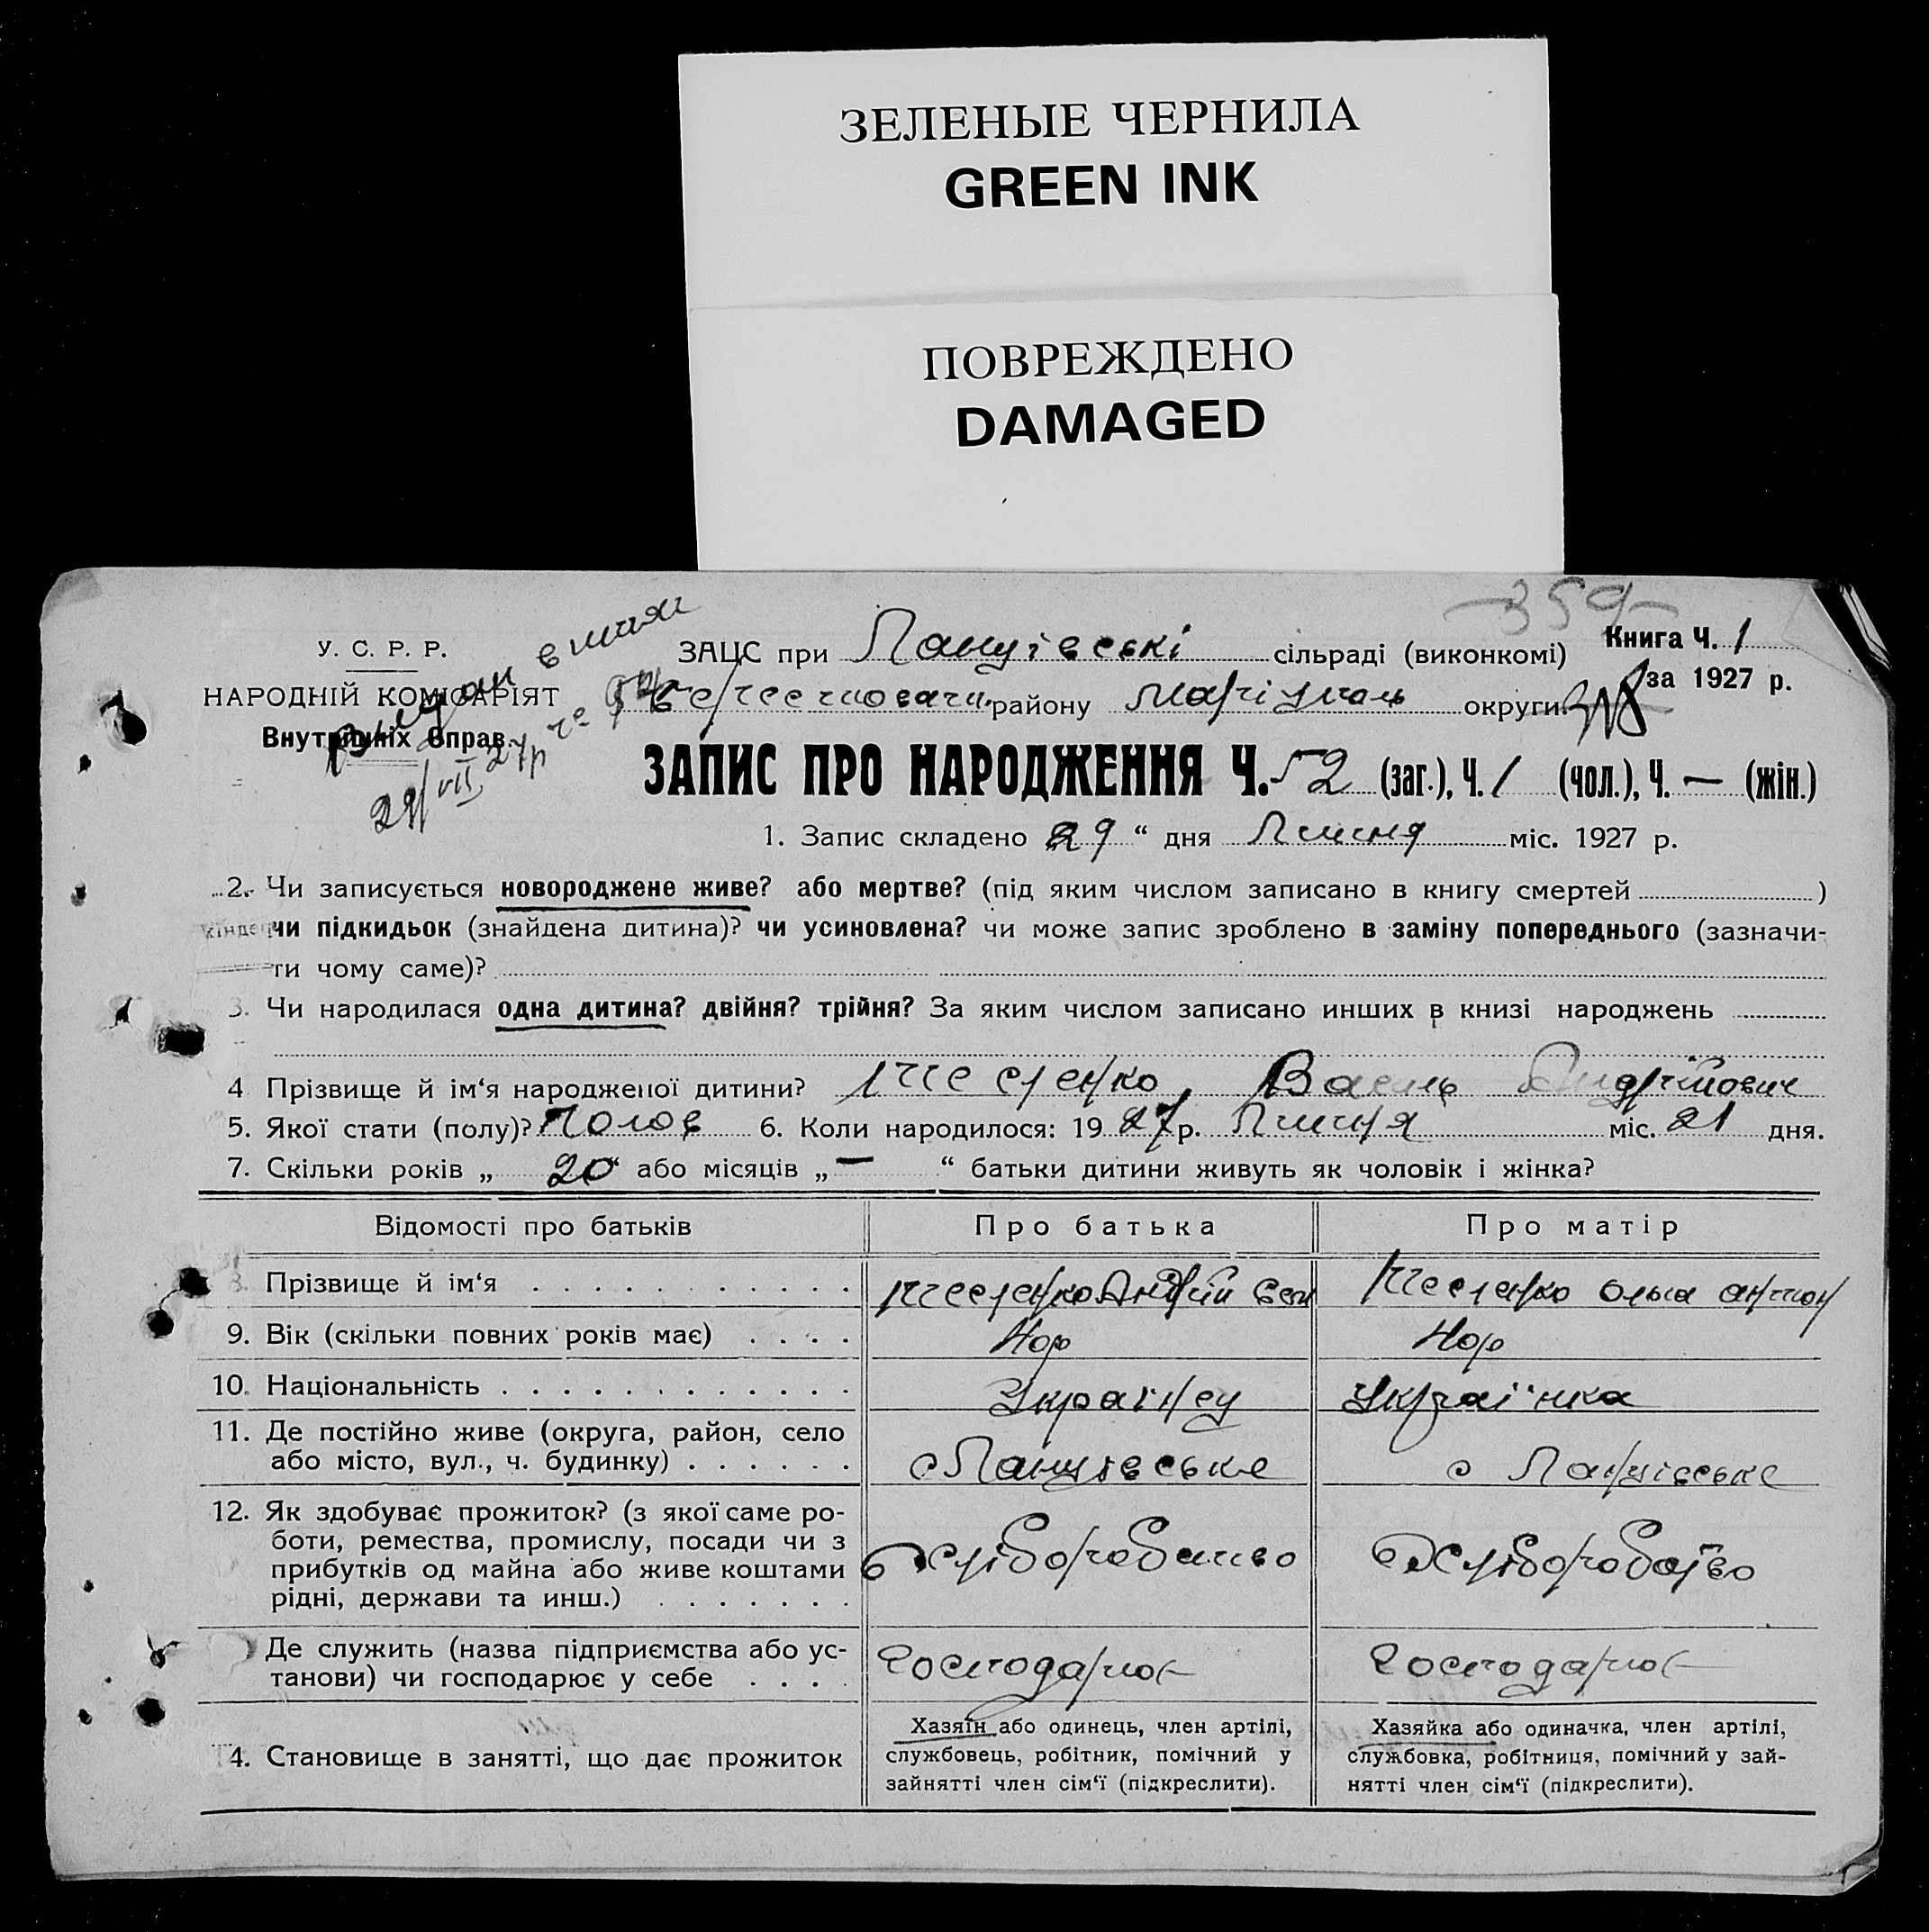 ЗЕЛЕНЫЕ ЧЕРНИЛА
GREEN INK
ПОВРЕЖДЕНО
DAMAGED
359
У. С. Р. Р.
НАРОДНІЙ КОМІСАРІЯТ
Внутрішніх Справ.
29/VII 27р
ЗАЦС при сільраді (виконкомі)
Книга Ч. 1
за 1927 р.
району Маріуполь округи.
ЗАПИС ПРО НАРОДЖЕННЯ Ч. 52 (заг.), Ч. 1 (чол.), Ч. — (жін.)
1. Запис складено „29“ дня Липня міс. 1927 р.
2. Чи записується новороджене живе? або мертве? (під яким числом записано в книгу смертей )
чи підкидьок (знайдена дитина)? чи усиновлена? чи може запис зроблено в заміну попереднього (зазначи-
ти чому саме)?
3. Чи народилася одна дитина? двійня? трійня? За яким числом записано инших в книзі народжень
4 Прізвище й ім‘я народженої дитини? Василь Андрійович
5. Якої стати (полу)? Чолов 6. Коли народилося: 1927 р. Липня міс. 21 дня.
7. Скільки років „20“ або місяців „—“ батьки дитини живуть як чоловік і жінка?
Відомості про батьків Про батька Про матір
8. Прізвище й ім‘я Андрій Ольга
9. Вік (скільки повних років має) 40р 40р
10. Національність Українец Українка
11. Де постійно живе (округа, район, село
або місто, вул., ч. будинку) с с
12. Як здобуває прожиток? (з якої саме ро-
боти, ремества, промислу, посади чи з
прибутків од майна або живе коштами
рідні, держави та инш.) Хліборобство Хліборобство
Де служить (назва підприємства або ус-
танови) чи господарює у себе Господарює Господарює
14. Становище в занятті, що дає прожиток
Хазяїн або одинець, член артілі,
службовець, робітник, помічний у
зайнятті член сім‘ї (підкреслити).
Хазяйка або одиначка, член артілі,
службовка, робітниця, помічний у зай-
нятті член сім‘ї (підкреслити).